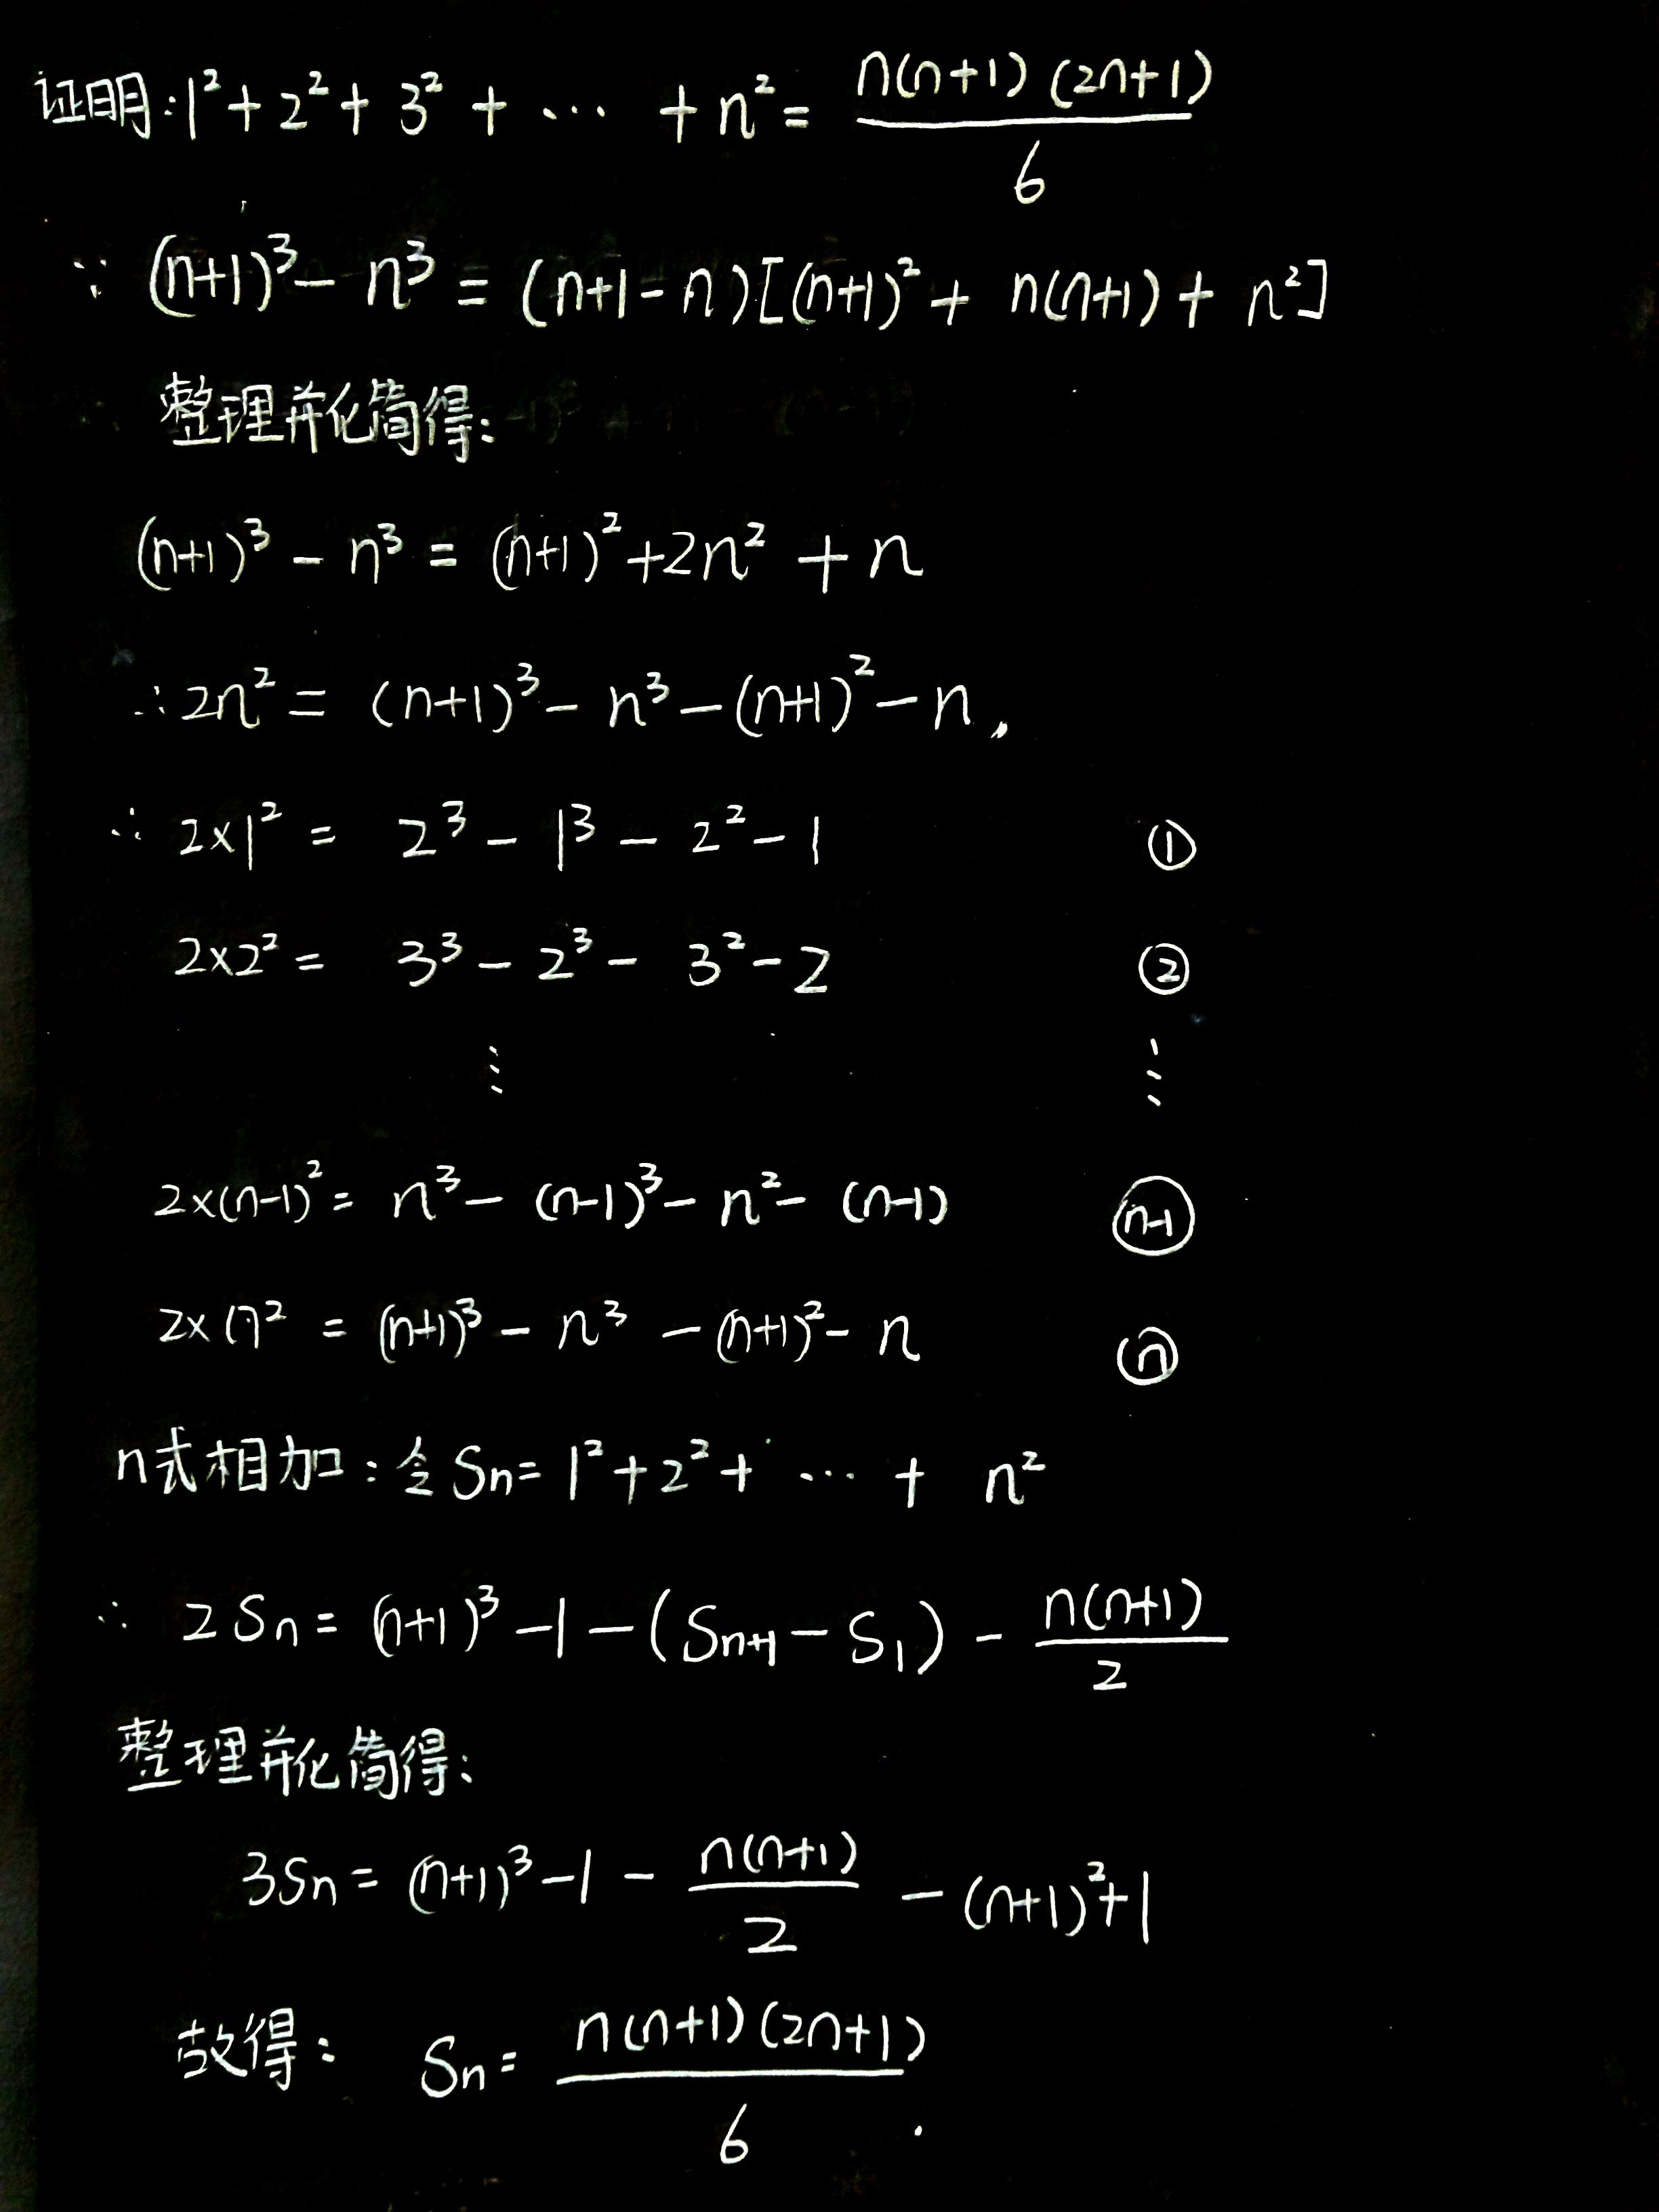 证明:1²+2²+3²+…+n²=n(n+1)(2n+1)/6
∵ (n+1)³-n³=(n+1-n)[(n+1)²+n(n+1)+n²]
整理并化简得:
(n+1)³-n³=(n+1)²+2n²+n
∴2n²=(n+1)³-n³-(n+1)²-n,
∴ 2×1²=2³-1³-2²-1 ①
2×2²=3³-2³-3²-2 ②
⋮ ⋮
2×(n-1)²=n³-(n-1)³-n²-(n-1) (n-1)
2×n²=(n+1)³-n³-(n+1)²-n ⓝ
n式相加:令Sn=1²+2²+…+n²
∴ 2Sn=(n+1)³-1-(Sn+1-S1)-n(n+1)/2
整理并化简得:
3Sn=(n+1)³-1-n(n+1)/2-(n+1)²+1
故得: Sn=n(n+1)(2n+1)/6.